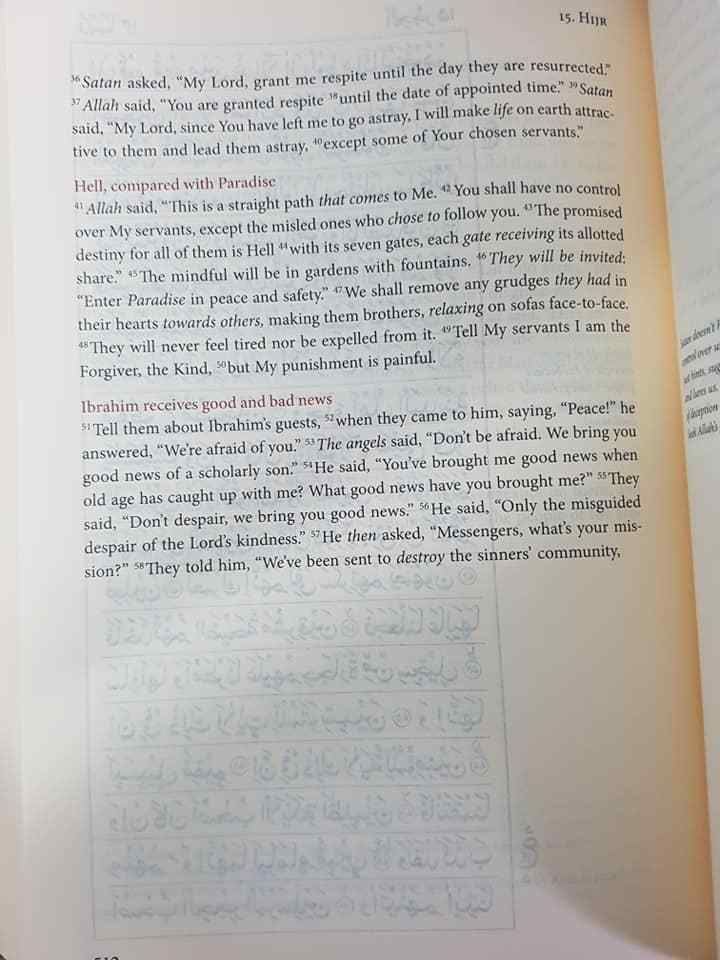 15. HIJR
³⁶Satan asked, “My Lord, grant me respite until the day they are resurrected.”
³⁷Allah said, “You are granted respite ³⁸until the date of appointed time.” ³⁹Satan
said, “My Lord, since You have left me to go astray, I will make life on earth attrac-
tive to them and lead them astray, ⁴⁰except some of Your chosen servants.”
Hell, compared with Paradise
⁴¹Allah said, “This is a straight path that comes to Me. ⁴²You shall have no control
over My servants, except the misled ones who chose to follow you. ⁴³The promised
destiny for all of them is Hell ⁴⁴with its seven gates, each gate receiving its allotted
share.” ⁴⁵The mindful will be in gardens with fountains. ⁴⁶They will be invited:
“Enter Paradise in peace and safety.” ⁴⁷We shall remove any grudges they had in
their hearts towards others, making them brothers, relaxing on sofas face-to-face.
⁴⁸They will never feel tired nor be expelled from it. ⁴⁹Tell My servants I am the
Forgiver, the Kind, ⁵⁰but My punishment is painful.
Ibrahim receives good and bad news
⁵¹Tell them about Ibrahim’s guests, ⁵²when they came to him, saying, “Peace!” he
answered, “We’re afraid of you.” ⁵³The angels said, “Don’t be afraid. We bring you
good news of a scholarly son.” ⁵⁴He said, “You’ve brought me good news when
old age has caught up with me? What good news have you brought me?” ⁵⁵They
said, “Don’t despair, we bring you good news.” ⁵⁶He said, “Only the misguided
despair of the Lord’s kindness.” ⁵⁷He then asked, “Messengers, what’s your mis-
sion?” ⁵⁸They told him, “We’ve been sent to destroy the sinners’ community,
Satan doesn’t
control over
hints,
and lures us.
deception
Allah’s